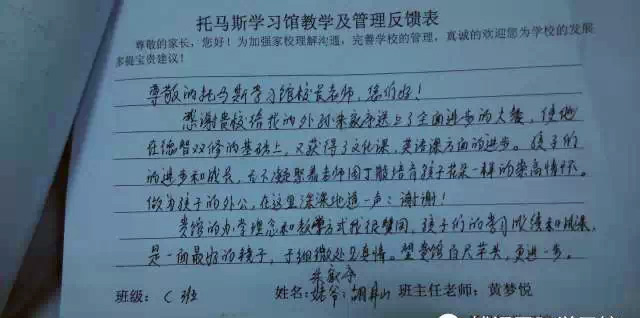 托马斯学习馆教学及管理反馈表
尊敬的家长，您好！为加强家校理解沟通，完善学校的管理，真诚的欢迎您为学校的发展
多提宝贵建议！
尊敬的托马斯学习馆校长老师，您们好！
感谢贵校给我的外孙朱家序送上了全面进步的大餐，使他
在德智双修的基础上，又获得了文化课、英语课方面的进步。孩子们
的进步和成长，无不凝聚着老师园丁般培育孩子花朵一样的崇高情怀。
做为孩子的外公，在这里深深地道一声：谢谢！
贵馆的办学理念和教学方式我很赞同，孩子们的学习成绩和成果，
是一面最好的镜子，于细微处见真情。望贵馆百尺竿头，更进一步。
班级：C班 姓名：爷爷：胡井山 班主任老师：黄梦悦